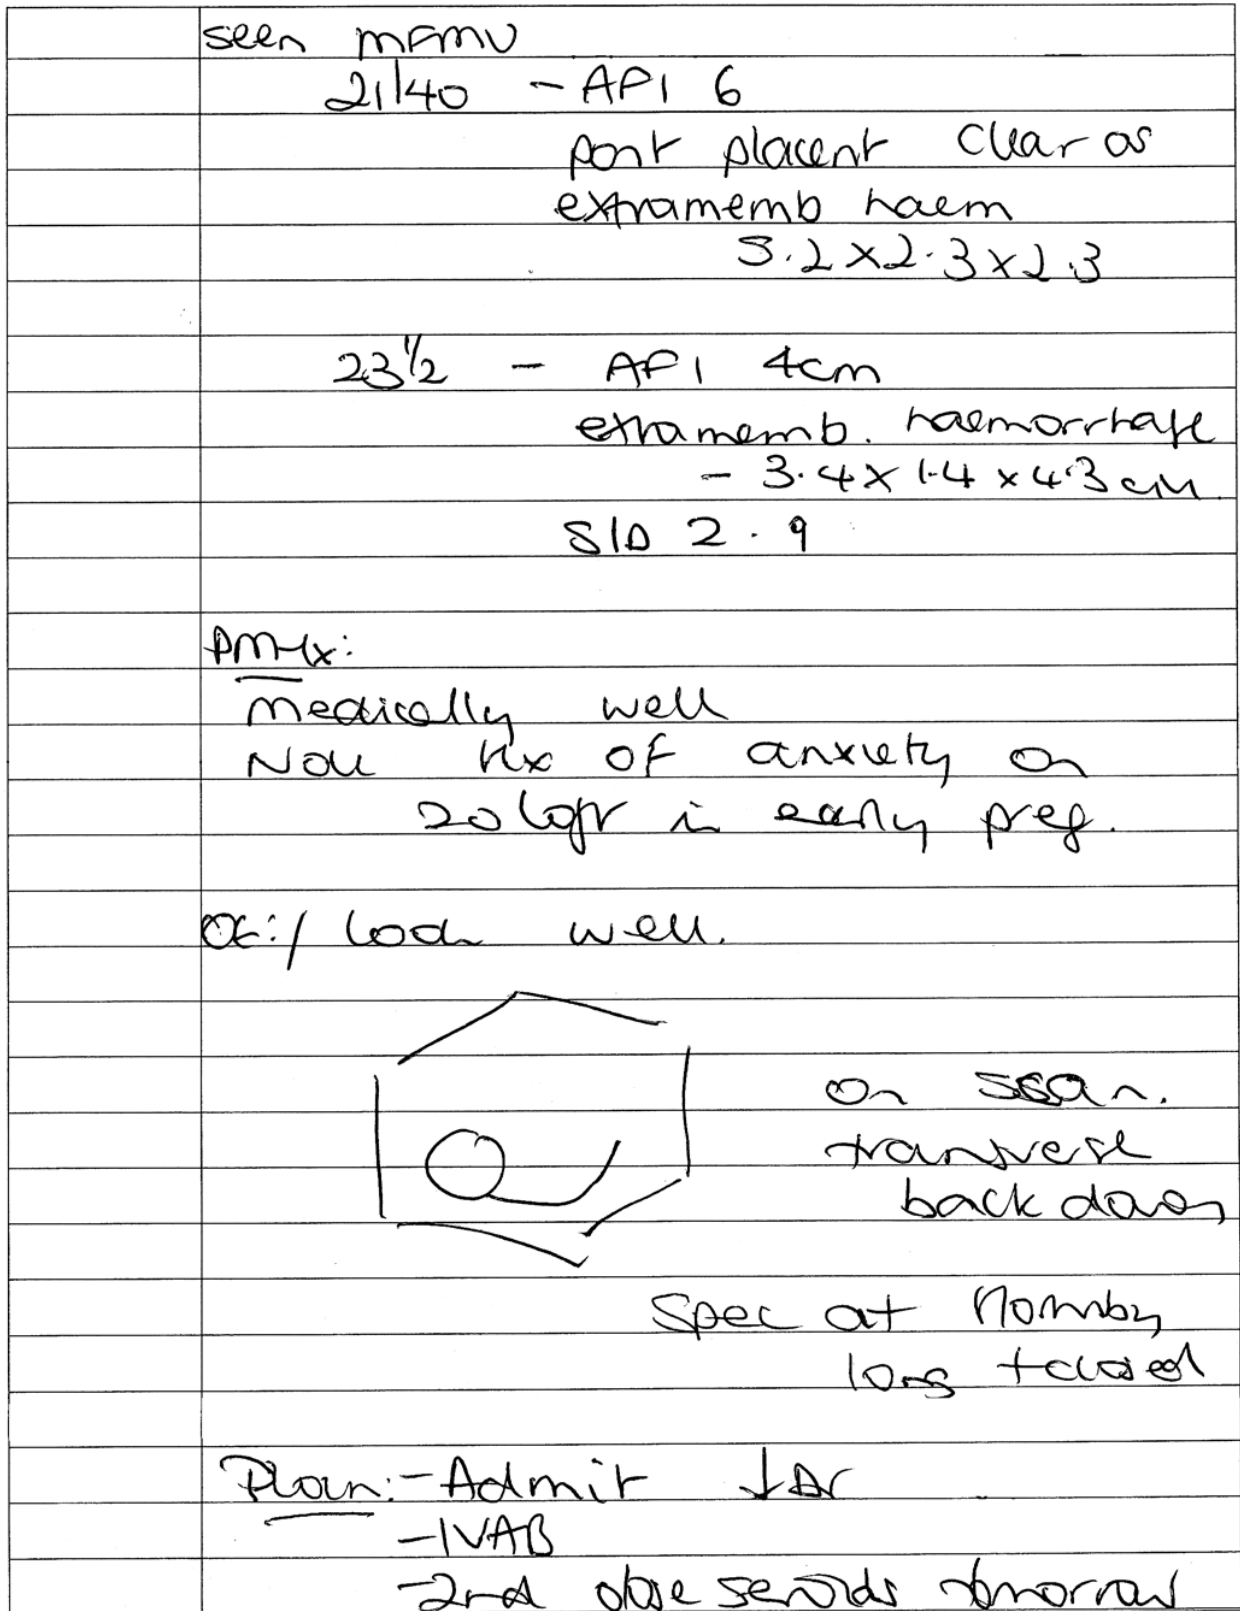 seen MFMU
21/40 - AFI 6
post placent clear os
extramemb haem
5.2 x 2.3 x 2.3
23 1/2 - AFI 4cm
extramemb. haemorrhage
- 3.4 x 1.4 x 4.3 cm.
S/D 2.9
PMHx:
medically well
Hx of anxiety on
20 in early pref.
OE:/ look well.
on scan.
transverse
back down
Spec at
long + closed
Plan: - Admit
- IVAB
- 2nd dose steroids tomorrow